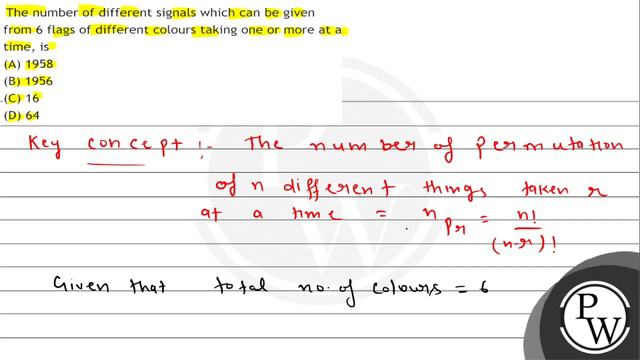 The number of different signals which can be given
from 6 flags of different colours taking one or more at a
time, is
(A) 1958
(B) 1956
(C) 16
(D) 64
Key concept :- The number of permutation
of n different things taken r
at a time = nPr = n!/(n-r)!
Given that total no. of colours = 6
PW